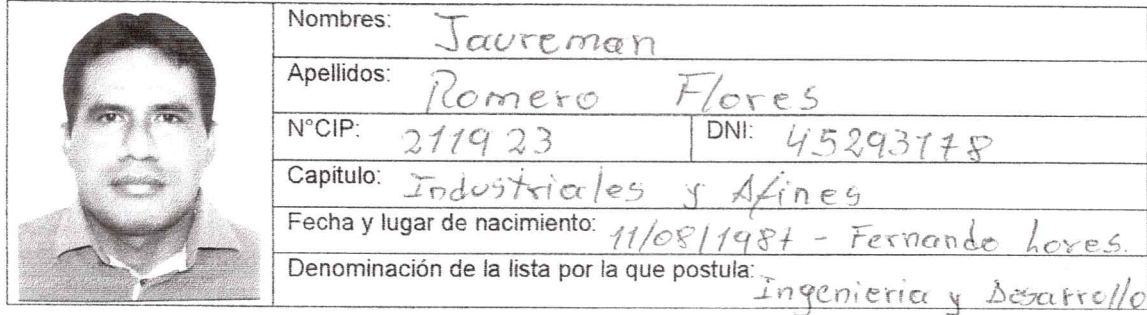 Nombres: Jaureman
Apellidos: Romero Flores
N°CIP: 211923 DNI: 45293178
Capitulo: Industriales y Afines
Fecha y lugar de nacimiento: 11/08/1987 - Fernando Lores.
Denominación de la lista por la que postula: Ingenieria y Desarrollo